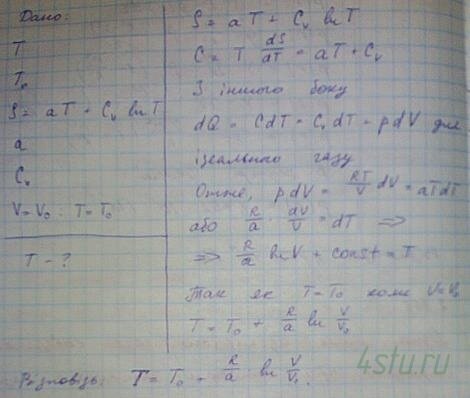 Дано:
T
T₀
S = aT + Cᵥ ln T
a
Cᵥ
V = V₀ : T = T₀
T - ?
S = aT + Cᵥ ln T
C = T dS/dT = aT + Cᵥ
З іншого боку
dQ = CdT = CᵥdT + pdV для
ідеального газу
Отже, pdV = RT/V dV = aTdT
або R/a · dV/V = dT ⇒
⇒ R/a ln V + const = T
Так як T = T₀ коли V = V₀
T = T₀ + R/a ln V/V₀
Відповідь: T = T₀ + R/a ln V/V₀.
4stu.ru